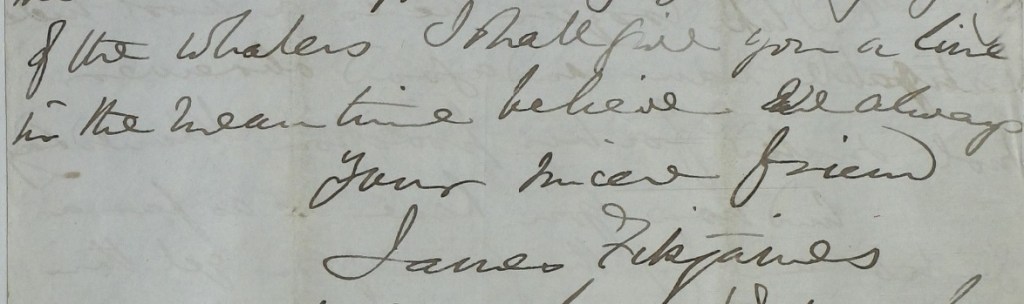 of the whalers I shall give you a line
in the mean time believe me always
Your sincere friend
James Fitzjames